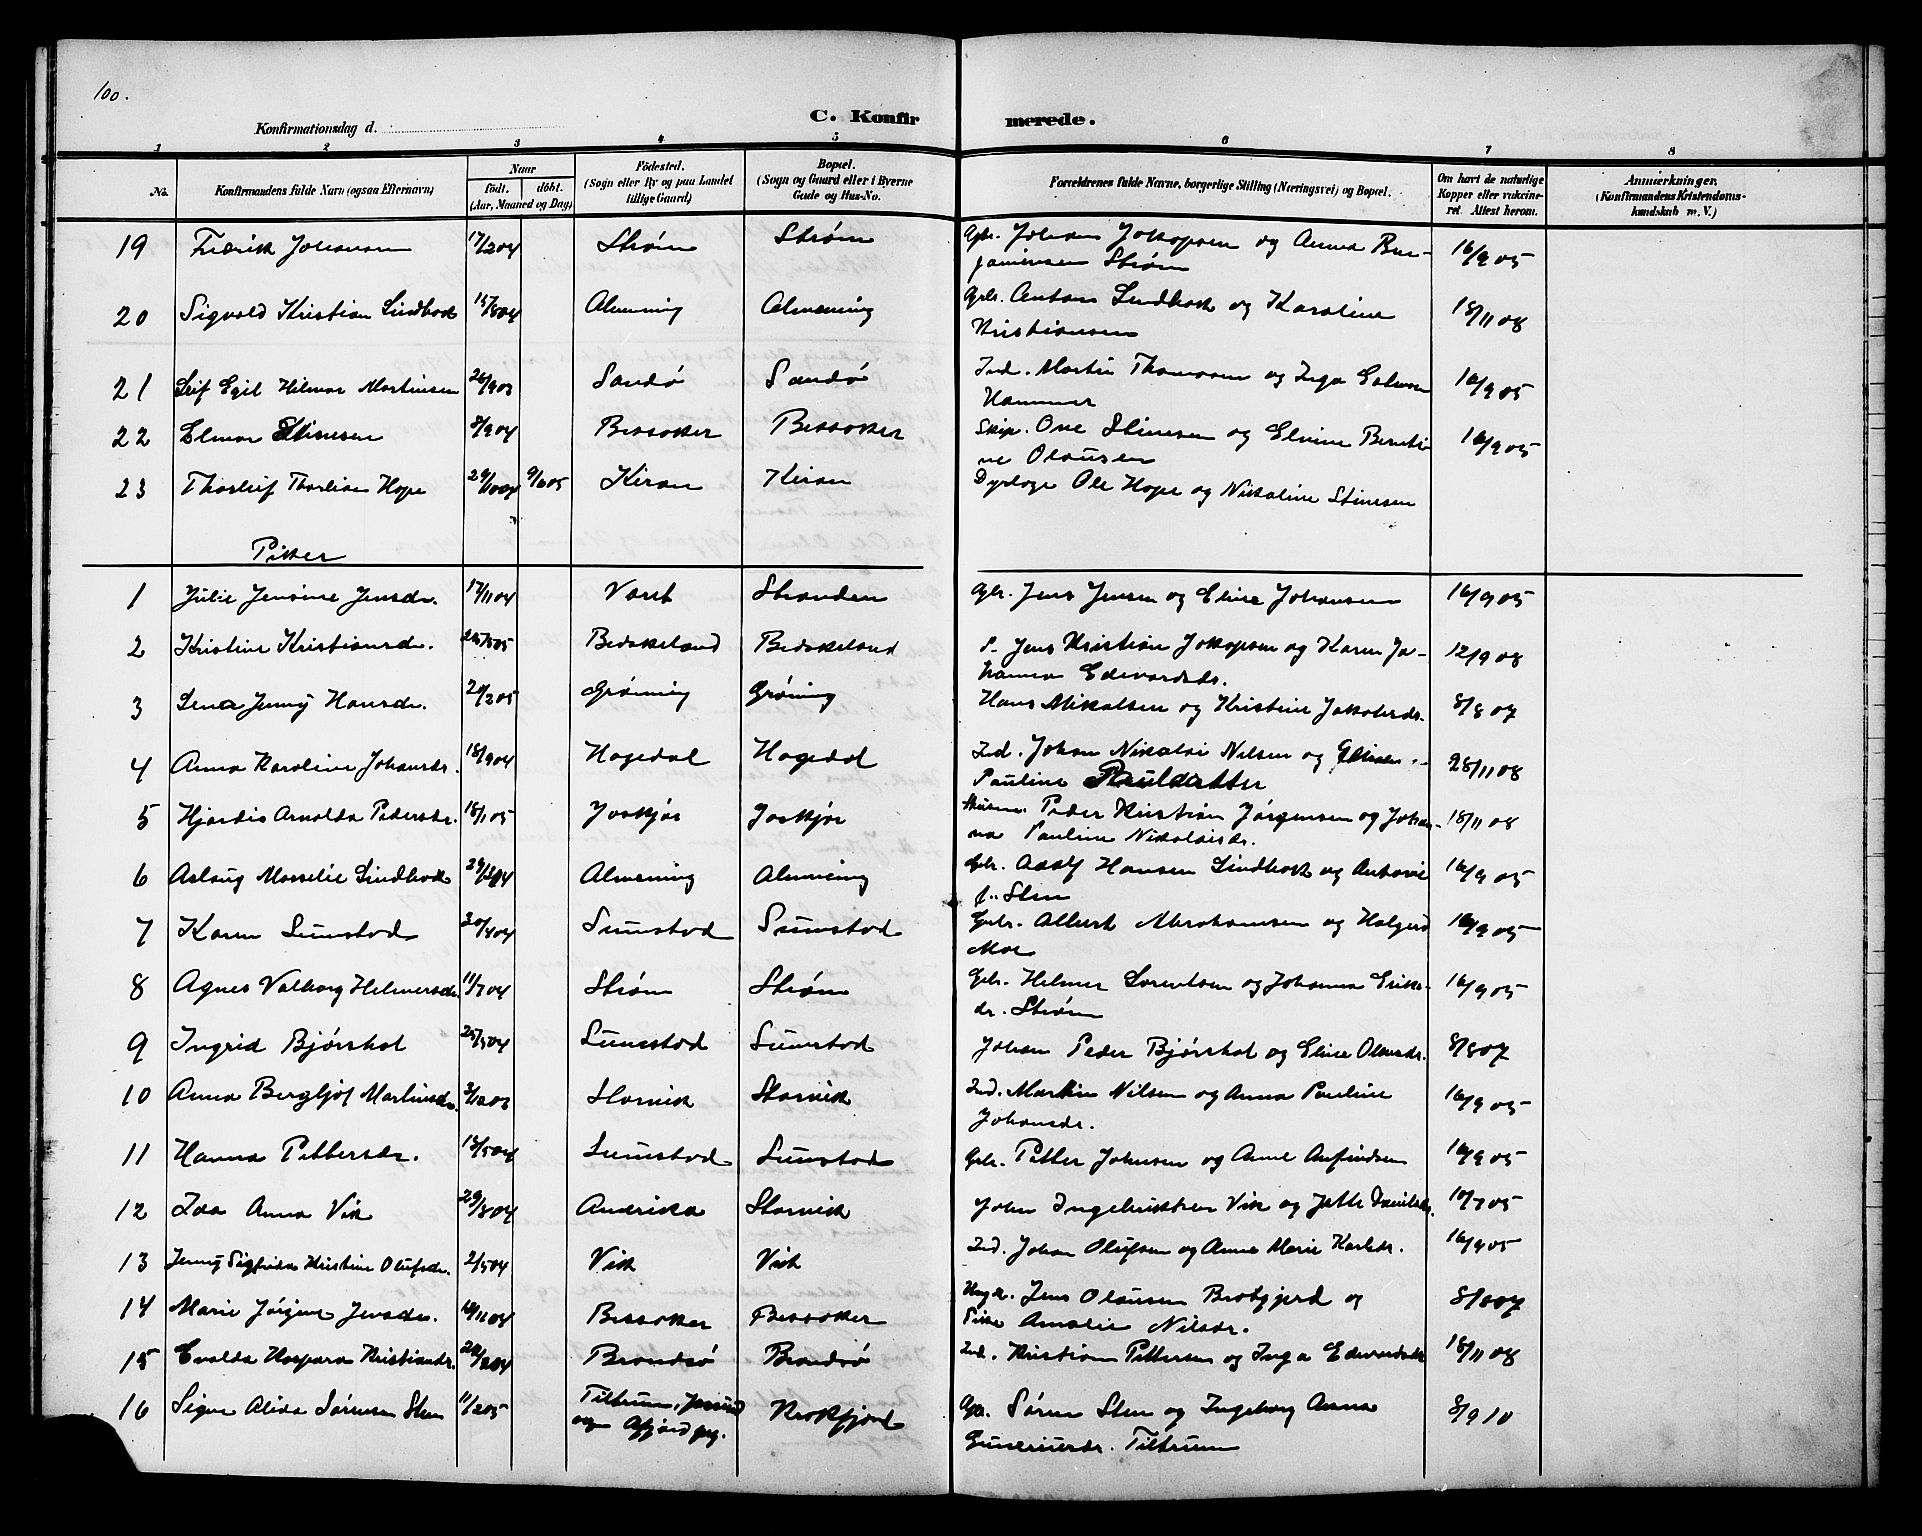 100.
C. Konfirmerede.
Konfirmationsdag d.
1 2 3 4 5 6 7 8
No. Konfirmandens fulde Navn (ogsaa Efternavn) Naar födt. döbt. (Aar, Maaned og Dag) Födested. (Sogn eller By og paa Landet tillige Gaard) Bopæl. (Sogn og Gaard eller i Byerne Gade og Hus-No. Forældrenes fulde Navne, borgerlige Stilling (Næringsvei) og Bopæl. Om havt de naturlige Kopper eller vakcineret. Attest herom. Anmærkninger, (Konfirmandens Kristendomskundskab m. V.)
19 Fredrik Johansen 17/2 04 Strøm Strøm Gbr. Johan Jakopsen og Anna Benjaminsen Strøm 16/9 05
20 Sigvald Kristian Lindbak 15/8 04 Almening Almening Gbr. Anton Lindbak og Karoline Kristiansen 18/11 08
21 Leif Egil Hilmar Martinsen 26/9 03 Sandø Sandø Ind. Martin Thomasen og Inga Hammer 16/9 05
22 Elmar Stinesen 8/9 04 Bessaker Bessaker Skip. Ove Stinesen og Elvine Berntine Olausen 16/9 05
23 Thorleif Thorlian Hope Kiran Kiran Dyrlæge Ole Hope og Nikoline Stinesen
Piker
1 Julie Jensine Jensdr. 17/11 04 Varet Stranden Gbr. Jens Jensen og Eline Johansen 16/9 05
2 Kristine Kristiansdr. 25/5 05 Beskeland Beskeland Jens Kristian Jakopsen og Karen Johanna Edevardsdr. 12/9 08
3 Lena Jenny Hansdr. 20/2 05 Grøning Grøning Hans Mikalsen og Kristine Jakobsdr. 8/8 07
4 Anna Karoline Johansdr. 18/9 04 Hagedal Hagedal Ind. Johan Nikolai Nilsen og Pauline Pauldatter 28/11 08
5 Hjørdis Arnolda Pedersdr. 18/1 05 Joskjør Joskjør Peder Kristian Jørgensen og Johanna Pauline Nikolaisdr. 18/11 08
6 Aslaug Marselie Lindbak 29/12 04 Almening Almening Gbr. Adolf Hansen Lindbak og Antonie f. Sten 16/9 05
7 Karen Sumstad 30/4 04 Sumstad Sumstad Gbr. Albert Abrahamsen og Halgerd Moe 16/9 05
8 Agnes Valborg Helmersdr. 11/7 04 Strøm Strøm Gbr. Helmer Lorentsen og Johanna Eriksdr. Strøm 16/9 05
9 Ingrid Bjørshol 25/5 04 Sumstad Sumstad Johan Peder Bjørshol og Eline Olausdr. 8/8 07
10 Anna Bergljot Martinsdr. 3/12 03 Storvik Storvik Ind. Martin Nilsen og Anna Pauline Johansdr. 16/9 05
11 Hanna Pettersdr. 13/5 04 Sumstad Sumstad Gbr. Petter Johnsen og Anne Anfindsen 16/9 05
12 Ida Anna Vik 29/8 04 Amerika Storvik John Ingebriktsen Vik og Jette Danielsdr. 10/7 05
13 Jenny Sigfrida Kristine Olufsdr. 2/5 04 Vik Vik Ind. Johan Olufsen og Anna Marie Karlsdr. 16/9 05
14 Marie Jørgine Jensdr. Bessaker Bessaker Jens Olausen Brobgjerd og Pike Amalie Nilsdr. 8/8 07
15 Evalda Kaspara Kristiansdr. Brandsø Brandsø Ind. Kristian Pettersen og Inga Edevardsdr. 18/11 08
16 Signe Alida Sørensen Sten 11/2 05 Tiltrum, Jøssund sogn Afjord prg. Krokfjord Gbr. Søren Sten og Ingeborg Anna Guneriusdr. Tiltrum 8/9 10